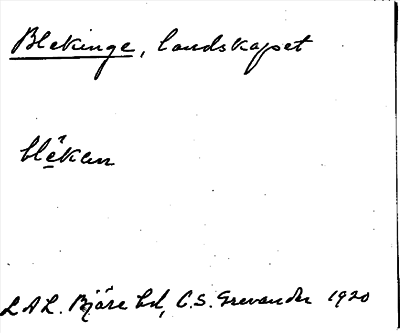 Blekinge, landskapet
blḗkan
L A L. Bjäre hd, C.S. Grevander 1920